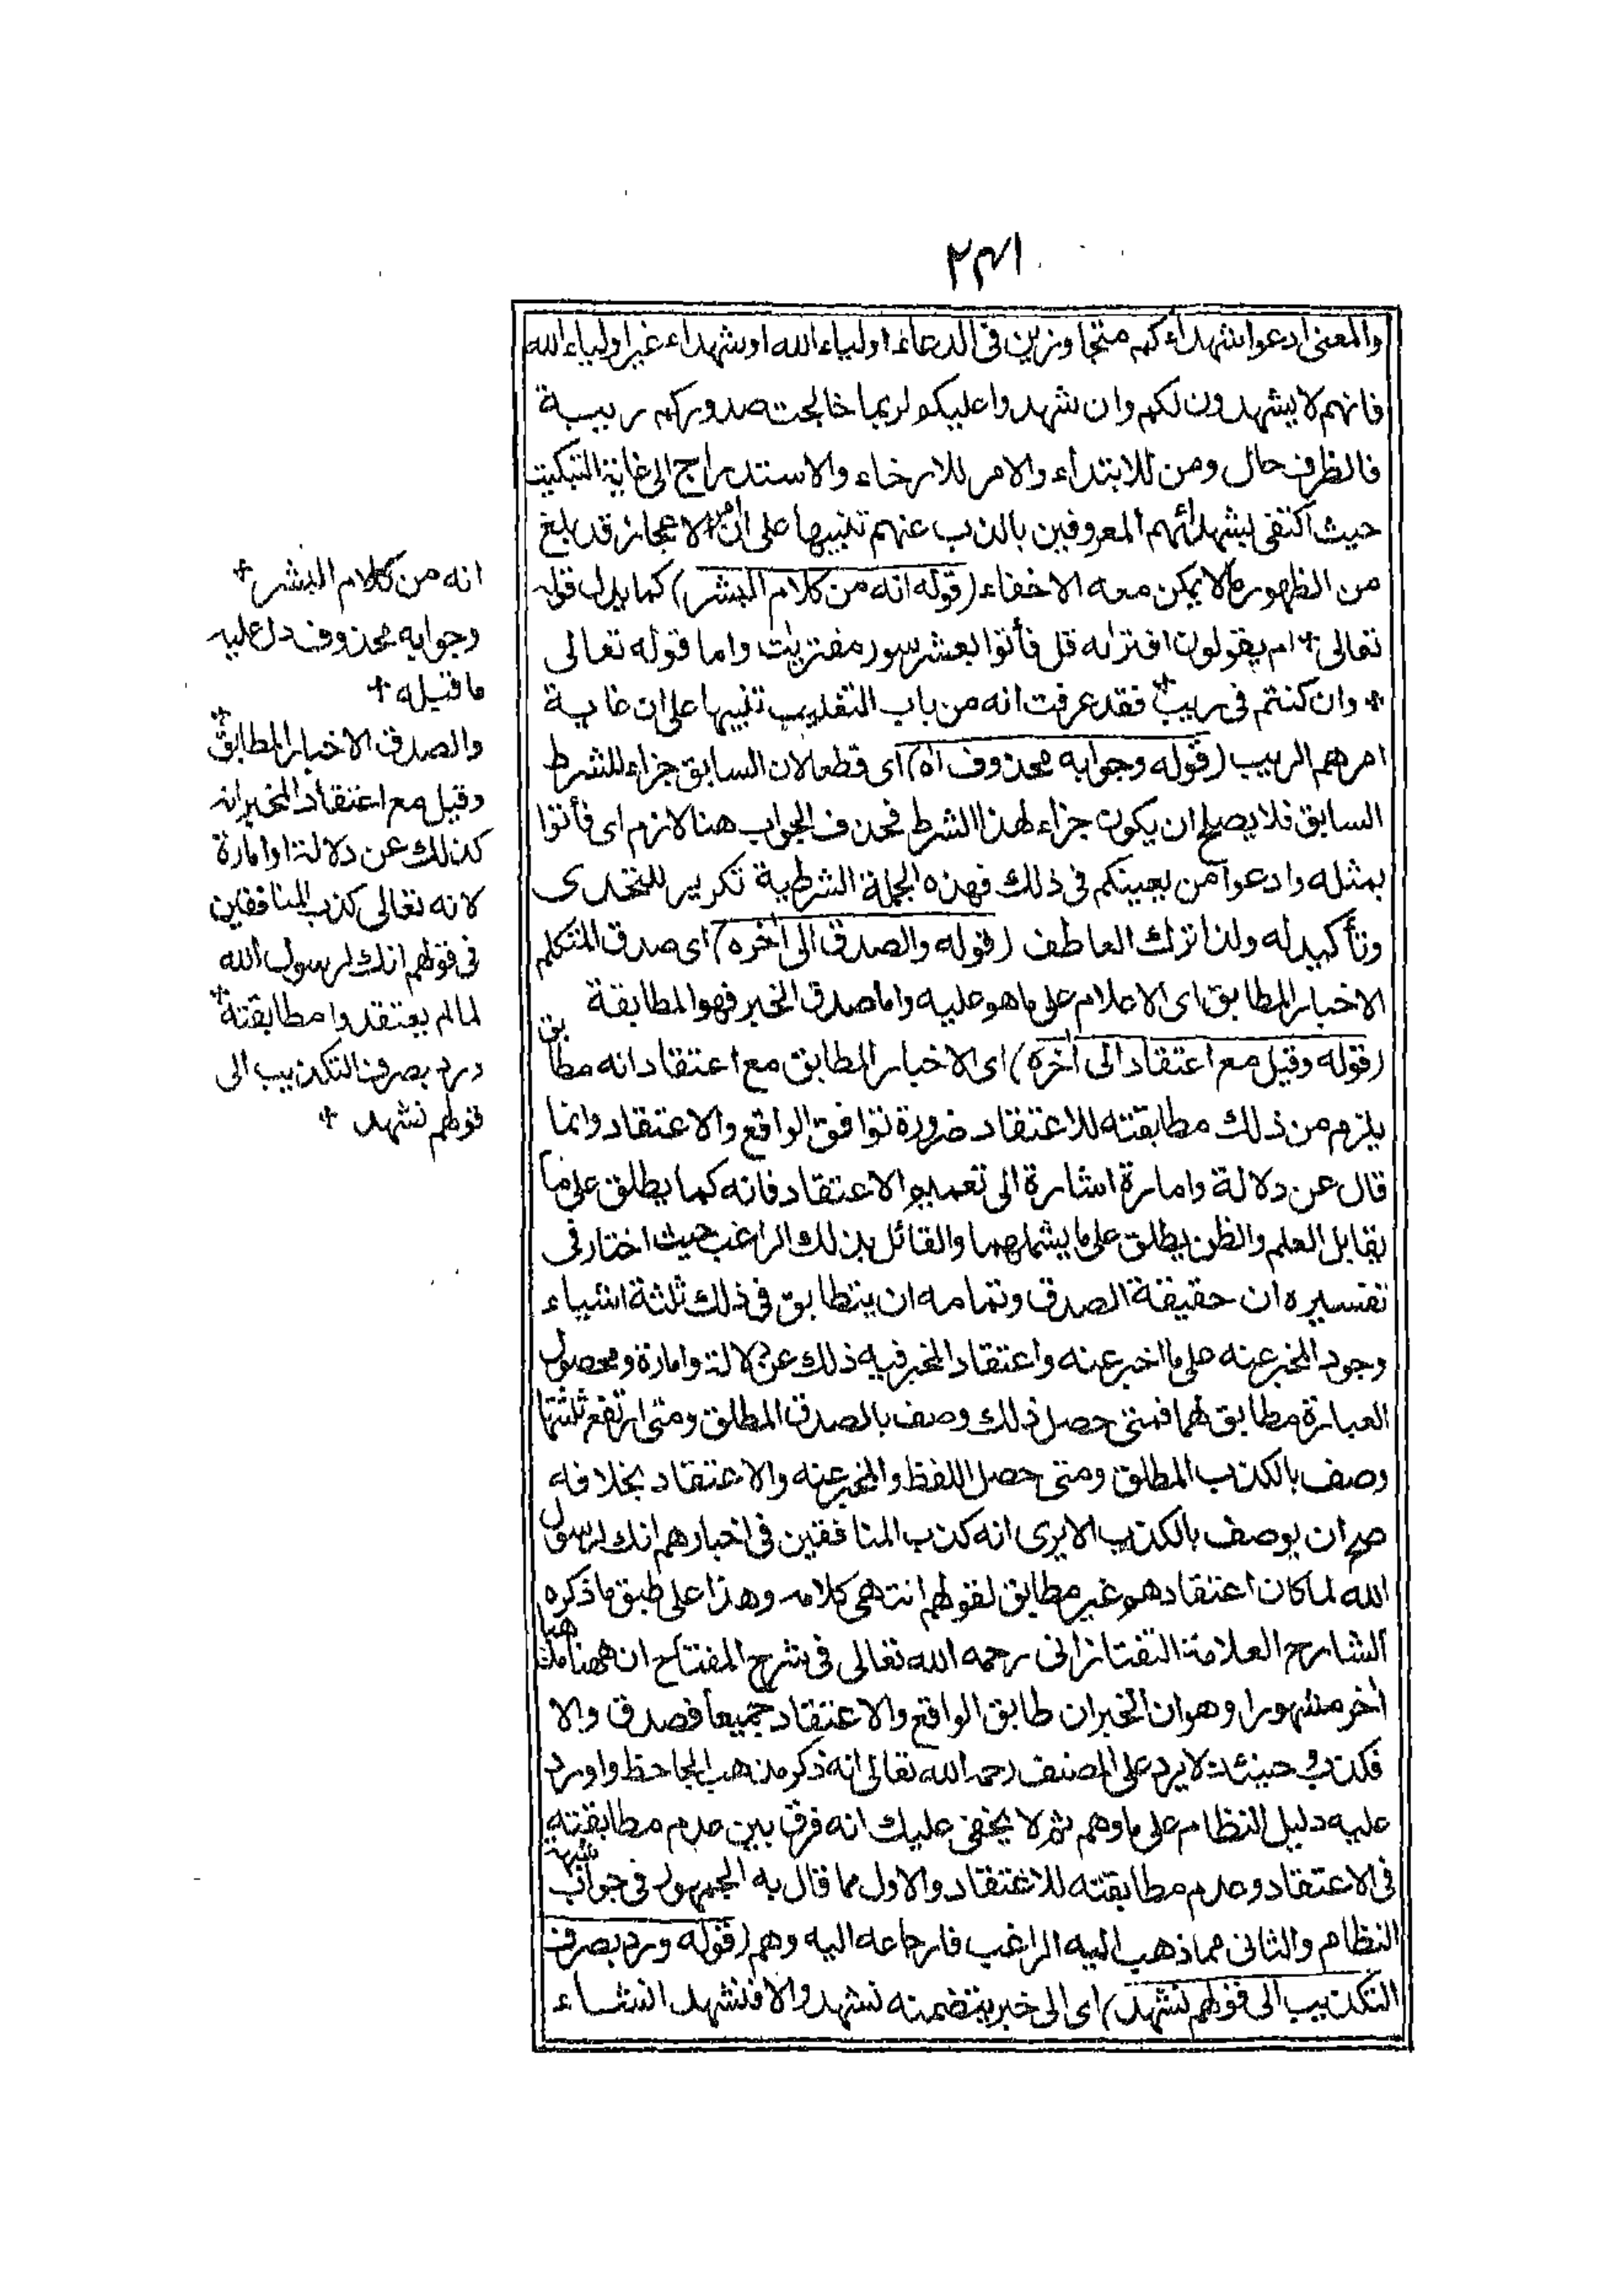 ٢٤١
والمعنى ادعوا شهداءكم متجاوزين فى الدعاء اولياء الله او شهداء غير اولياء الله
فانهم لا يشهدون لكم وان شهدوا عليكم لربما خالجت صدوركم ريبة
فالظرف حال ومن للابتداء والامر للارخاء والاستدراج الى غاية التبكيت
حيث اكتفى بشهدائهم المعروفين بالذب عنهم تنبيها على ان امر الاعجاز قد بلغ
من الظهور ما لا يمكن معه الاخفاء (قوله انه من كلام البشر) كما يدل قوله
تعالى + ام يقولون افتراه قل فأتوا بعشر سور مفتريت واما قوله تعالى
+ وان كنتم فى ريب + فقد عرفت انه من باب التغليب تنبيها على ان غاية
امرهم الريب (قوله وجوابه محذوف اه) اى قطعا لان السابق جزاء للشرط
السابق فلا يصلح ان يكون جزاء لهذا الشرط فحذف الجواب هنا لازم اى فأتوا
بمثله وادعوا من يعينكم فى ذلك فهذه الجملة الشرطية تكرير للتحدى
وتأكيد له ولذا ترك العاطف (قوله والصدق الى أخره) اى صدق المتكلم
الاخبار المطابق اى الاعلام على ما هو عليه واما صدق الخبر فهو المطابقة
(قوله وقيل مع اعتقاد الى أخره) اى الاخبار المطابق مع اعتقاد انه مطابق
يلزم من ذلك مطابقته للاعتقاد ضرورة توافق الواقع والاعتقاد وانما
قال عن دلالة وامارة اشارة الى تعميم الاعتقاد فانه كما يطلق على ما
يقابل العلم والظن يطلق على ما يشملهما والقائل بذلك الراغب حيث اختار فى
تفسيره ان حقيقة الصدق وتمامه ان يتطابق فى ذلك ثلثة اشياء
وجود المخبر عنه على ما اخبر عنه واعتقاد المخبر فيه ذلك عن دلالة وامارة وحصول
العبارة مطابق لهما فمتى حصل ذلك وصف بالصدق المطلق ومتى ارتفع ثلثتها
وصف بالكذب المطلق ومتى حصل اللفظ والمخبر عنه والاعتقاد بخلافه
صح ان يوصف بالكذب الا يرى انه كذب المنافقين فى اخبارهم انك لرسول
الله لما كان اعتقادهم غير مطابق لقولهم انتهى كلامه وهذا على طبق ما ذكره
الشارح العلامة التفتازانى رحمه الله تعالى فى شرح المفتاح ان ههنا مذهبا
أخر مشهورا وهو ان الخبر ان طابق الواقع والاعتقاد جميعا فصدق والا
فكذب وحينئذ لا يرد على المصنف رحمه الله تعالى انه ذكر مذهب الجاحظ واورد
عليه دليل النظام على ما وهم ثم لا يخفى عليك انه فرق بين عدم مطابقته
فى الاعتقاد وعدم مطابقته للاعتقاد والاول مما قال به الجمهور فى جواب شبهة
النظام والثانى مما ذهب اليه الراغب فارجاعه اليه وهم (قوله ورد بصرف
التكذيب الى قولهم نشهد) اى الى خبر يتضمنه نشهد والا فنشهد انشاء
انه من كلام البشر +
وجوابه محذوف دل عليه
ما قبله +
والصدق الاخبار المطابق +
وقيل مع اعتقاد المخبر انه
كذلك عن دلالة او امارة
لانه تعالى كذب المنافقين
فى قولهم انك لرسول الله
لما لم يعتقدوا مطابقته +
ورد بصرف التكذيب الى
قولهم نشهد +